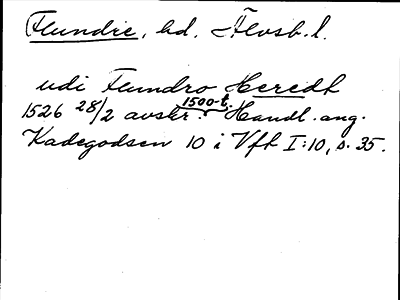 Flundre, hd. Älvsb. l.
udi Flundro Heredt
1526 28/2 avskr. 1500-t. Handl. ang.
Kadegodsen 10 i Vft I:10, s. 35.